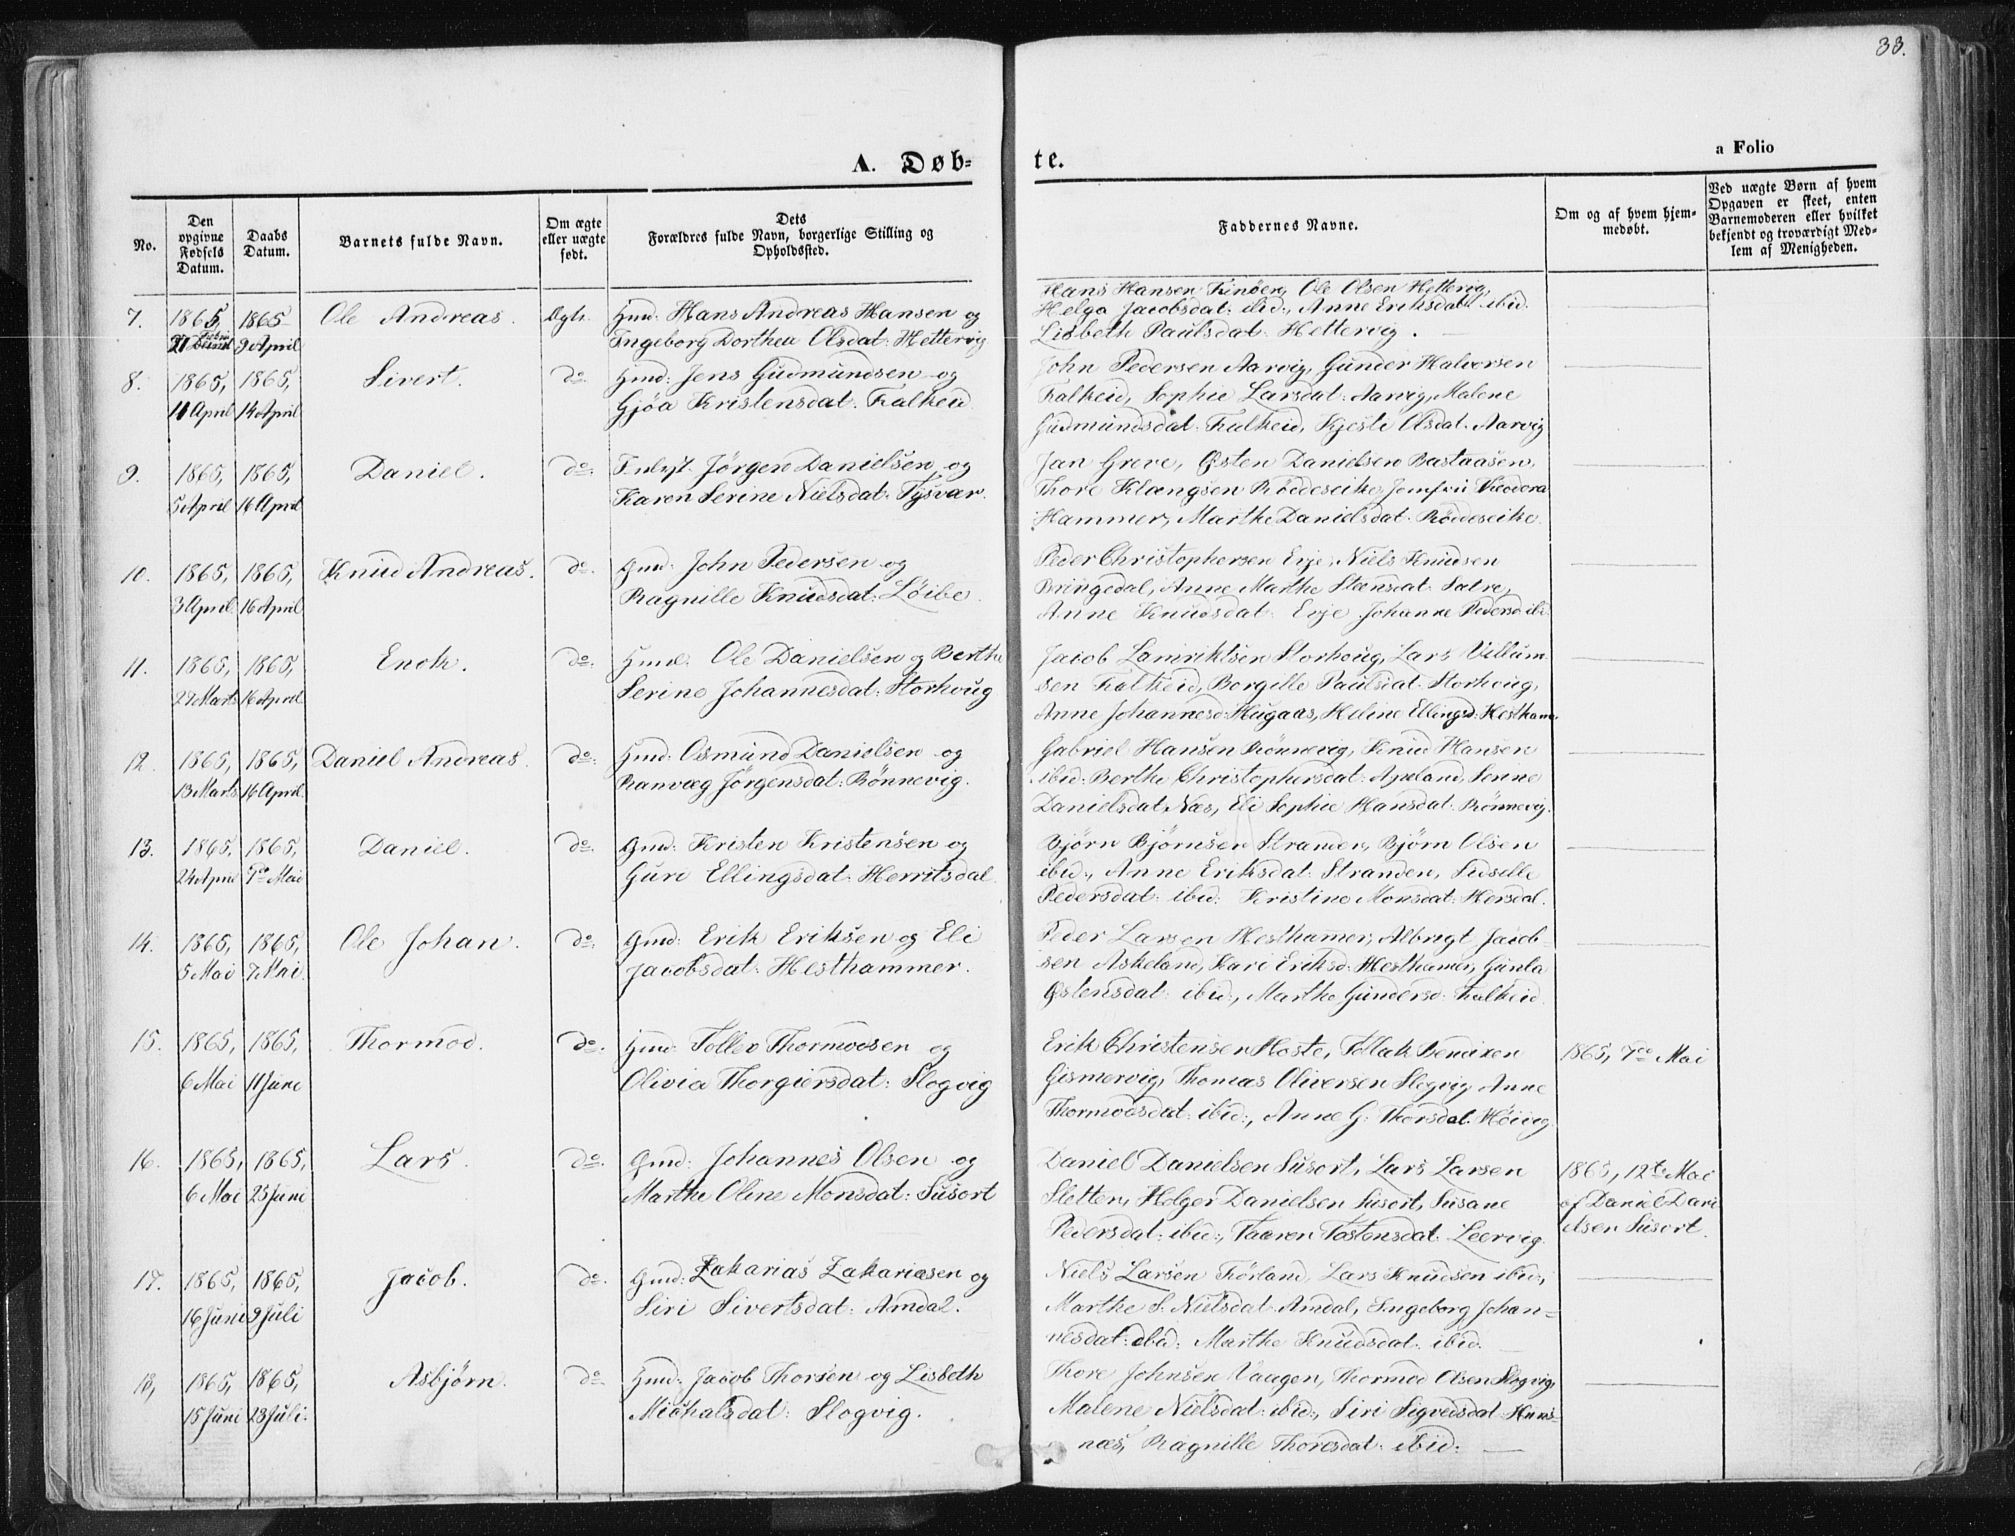 33.
A. Døb-
te.
a Folio
No.
Den opgivne Fødsels Datum.
Daabs Datum.
Barnets fulde Navn.
Om ægte eller uægte født.
Dets Forældres fulde Navn, borgerlige Stilling og Opholdssted.
Faddernes Navne.
Om og af hvem hjemmedøbt.
Ved uægte Børn af hvem Opgaven er skeet, enten Barnemoderen eller hvilket bekjendt og troværdigt Medlem af Menigheden.
7. 1865, 1865 Ole Andreas. Ægte. Gmd: Hans Andreas Hansen og
21 9 April Ingeborg Dorthea Olsdat: Hettervig
Hans Hansen Ole Olsen Hettervig,
Helga Jacobsdat: ibid:, Anne Eriksdat: ibid.
Lisbeth Paulsdat: Hettervig.
8. 1865, 1865, Sivert. do. Gmd: Jens Gudmundsen og
11 April 14 April Gjøa Kristensdat: Falkeid
John Pedersen Aarvig, Gunder Halversen
Falkeid, Sophie Larsdat: Aarvig, Malene
Gudmundsdat: Falkeid, Kjesti Olsdat: Aarvig
9. 1865, 1865, Daniel. do: Jørgen Danielsen og
5 April 16 April Karen Serine Nielsdat: Tysvær.
Jan Greve, Østen Danielsen Bastaasen,
Thore Klængsen Røddeseike, Jomfru Theodora
Hammer, Marthe Danielsdat: Røddeseike.
10. 1865, 1865, Knud Andreas. do: Gmd: John Pedersen og
3 April 16 April Ragnille Knudsdat: Løibe.
Peder Christophersen Erje, Niels Knudsen
Bringedal, Anne Marthe Stensdat: Satre,
Anne Knudsdat: Erje Johanne Pedersd: ibi
11. 1865, 1865, Enok. do: Hmd: Ole Danielsen og Berthe
29 Marts 16 April Serine Johannesdat: Storhoug
Jacob Lauriktsen Storhoug, Lars Villum-
sen Falkeid, Borgille Paulsdat: Storhoug,
Anne Johannesd: Hugaas, Heline Ellingsd: Hestham
12. 1865, 1865, Daniel Andreas. do: Hmd: Osmund Danielsen og
13 Marts 16 April Ranvæg Jørgensdat: Rønnevig.
Gabriel Hansen Rønnevig, Knud Hansen
ibid: Berthe Christophersdat: Apeland, Serine
Danielsdat: Næs, Eli Sophie Hansdat: Rønnevig.
13. 1865, 1865, Daniel. do: Gmd: Kristen Kristensen og
24 April 7de Mai Guri Ellingsdat: Herritsdal
Bjørn Bjørnsen Stranden, Bjørn Olsen
ibid:, Anne Eriksdat: Stranden, Sidselle
Pedersdat: ibid: Kristine Monsdat: Hersdal.
14. 1865, 1865, Ole Johan. do: Gmd: Erik Eriksen og Eli
5 Mai 7 Mai. Jacobsdat: Hesthammer.
Peder Larsen Hesthamer, Albregt Jacob-
sen Askeland, Kari Eriksd: Hesthamer, Gunla
Østensdat: ibid:, Marthe Gundersd: Falkeid.
15. 1865, 1865, Thormod. do. Hmd: Tollev Thormodsen og
6 Mai 11 Juni Olivia Thorgiersdat: Slogvig
Erik Christensen Stoste, Tollak Bendixen
Gismervig, Thomas Oliversen Slogvig Anne
Thormodsdat: ibid:, Anne G. Thorsdat: Høivig.
1865, 7de Mai
16. 1865, 1865, Lars. do. Gmd: Johannes Olsen og
6 Mai 25 Juni Marthe Oline Monsdat: Susort
Daniel Danielsen Susort, Lars Larsen
Sletten, Holger Danielsen Susort, Susane
Pedersdat: ibid:, Taaren Tostensdat: Leervig.
1865, 12te Mai
af Daniel Dani
elsen Susort.
17. 1865, 1865, Jacob. do. Gmd: Zakarias Zakariasen og
16 Juni 9 Juli Siri Sivertsdat: Amdal.
Niels Larsen Førland, Lars Knudsen ibid:,
Marthe S. Nielsdat: Amdal, Ingeborg Johan-
nesdat: ibid: Marthe Knudsdat: ibid.
18, 1865, 1865, Asbjørn. do. Hmd: Jacob Thorsen og Lisbeth
15 Juni 23 Juli. Michalsdat: Slogvig.
Thore Johnsen Vaagen, Thormod Olsen Slogvig,
Malene Nielsdat: ibid:, Siri Sigvedsdat: Huns-
næs, Ragnille Thoresdat: ibid: